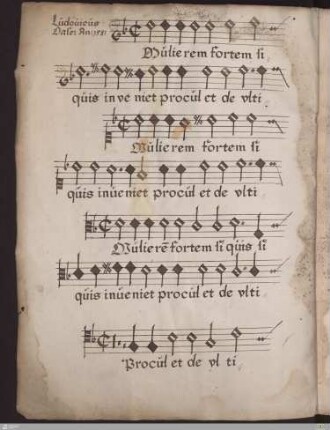 Ludouicus
Daser Auors:
Mulierem fortem si
quis inveniet procul et de vlti
Mulierem fortem si
quis inueniet procul et de vlti
Mulierē fortem si quis si
quis inueniet procul et de vlti
Procul et de vl ti